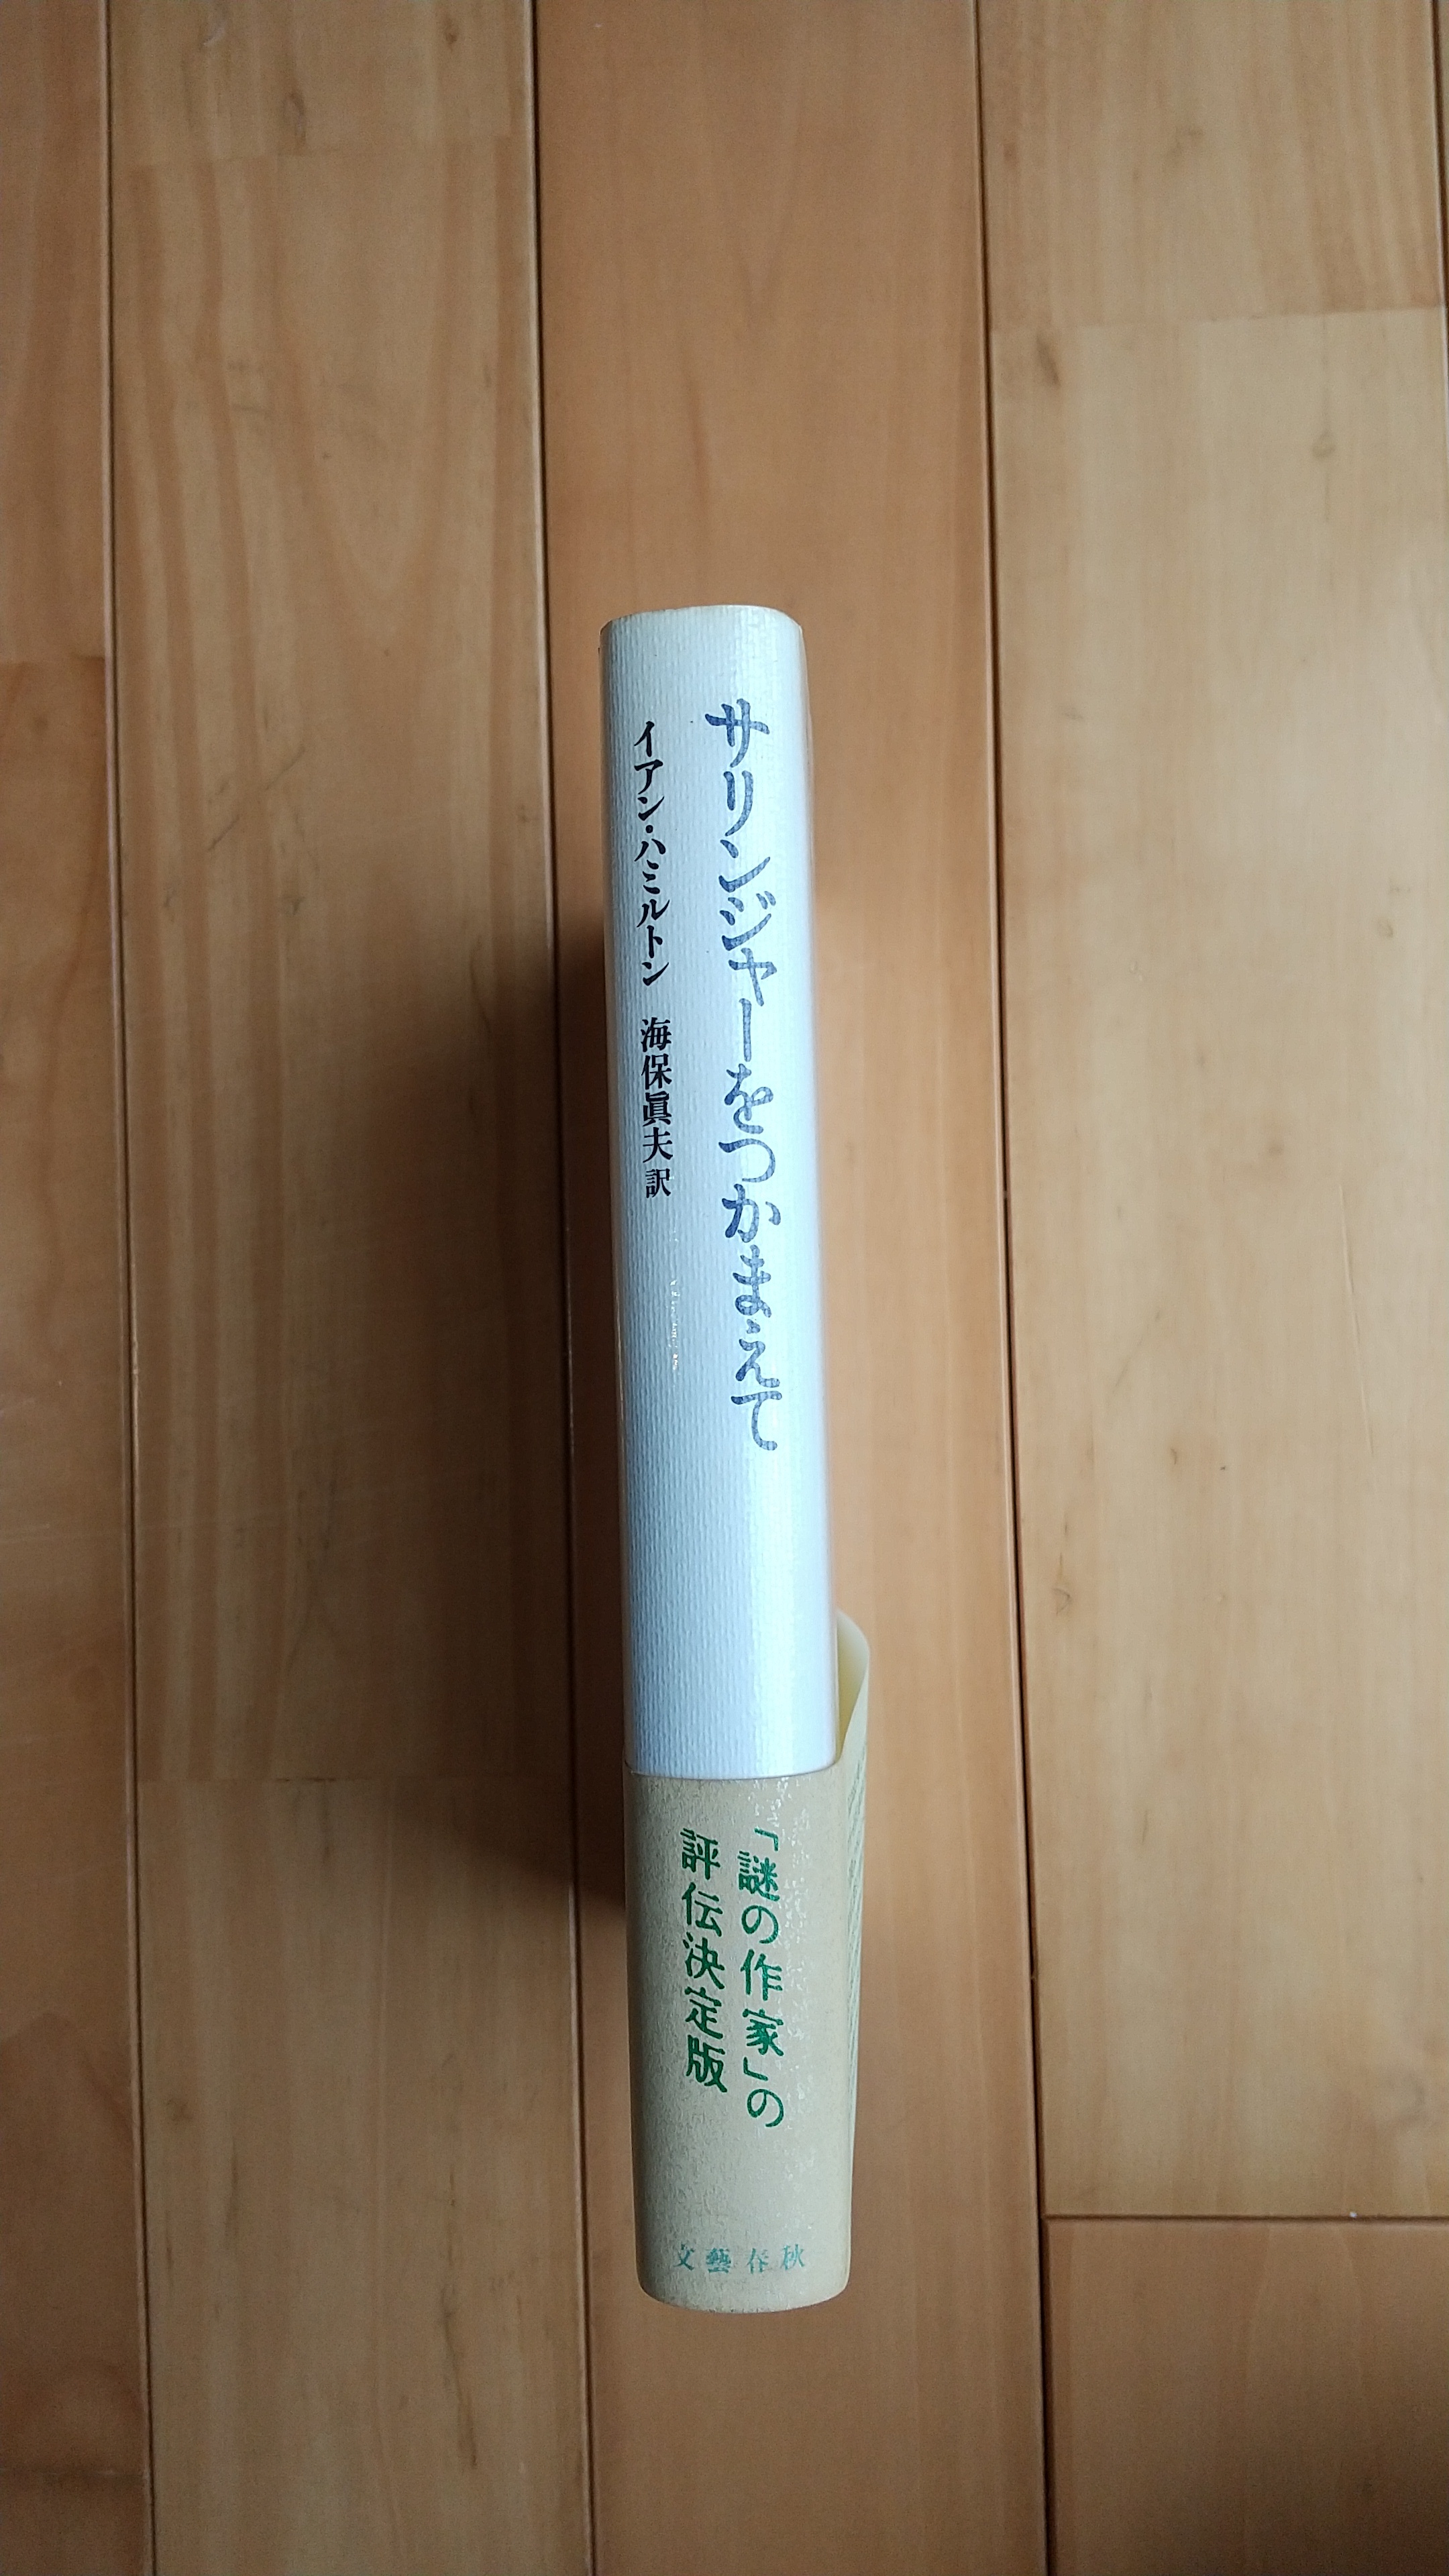 サリンジャーをつかまえて
イアン・ハミルトン 海保眞夫 訳
「謎の作家」の
評伝決定版
文藝春秋